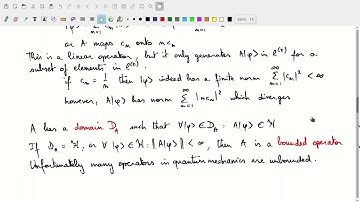 or A maps cₘ onto m cₘ
This is a linear operation, but it only generates A|φ> in ℓ⁽²⁾ for a
subset of elements in ℓ⁽²⁾.
if cₘ = 1/m then |φ> indeed has a finite norm ∑_{m=1}^{∞} |cₘ|² < ∞
however, A|φ> has norm ∑_{m=1}^{∞} |m cₘ|² which diverges
A has a domain D_A such that ∀|φ> ∈ D_A : A|φ> ∈ ℋ
If D_A = ℋ, or ∀ |φ> ∈ ℋ : ‖A|φ>‖ < ∞, then A is a bounded operator
Unfortunately many operators in quantum mechanics are unbounded.